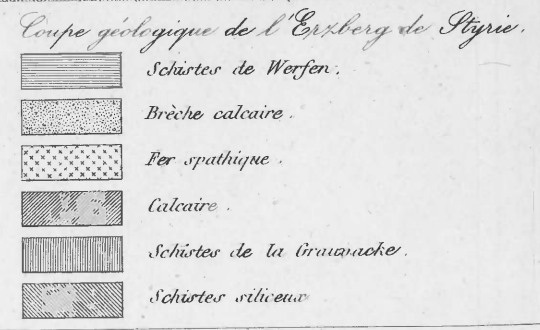 Coupe géologique de l'Erzberg de Styrie.
Schistes de Werfen.
Brèche calcaire.
Fer spathique.
Calcaire.
Schistes de la Grauwacke.
Schistes siliceux